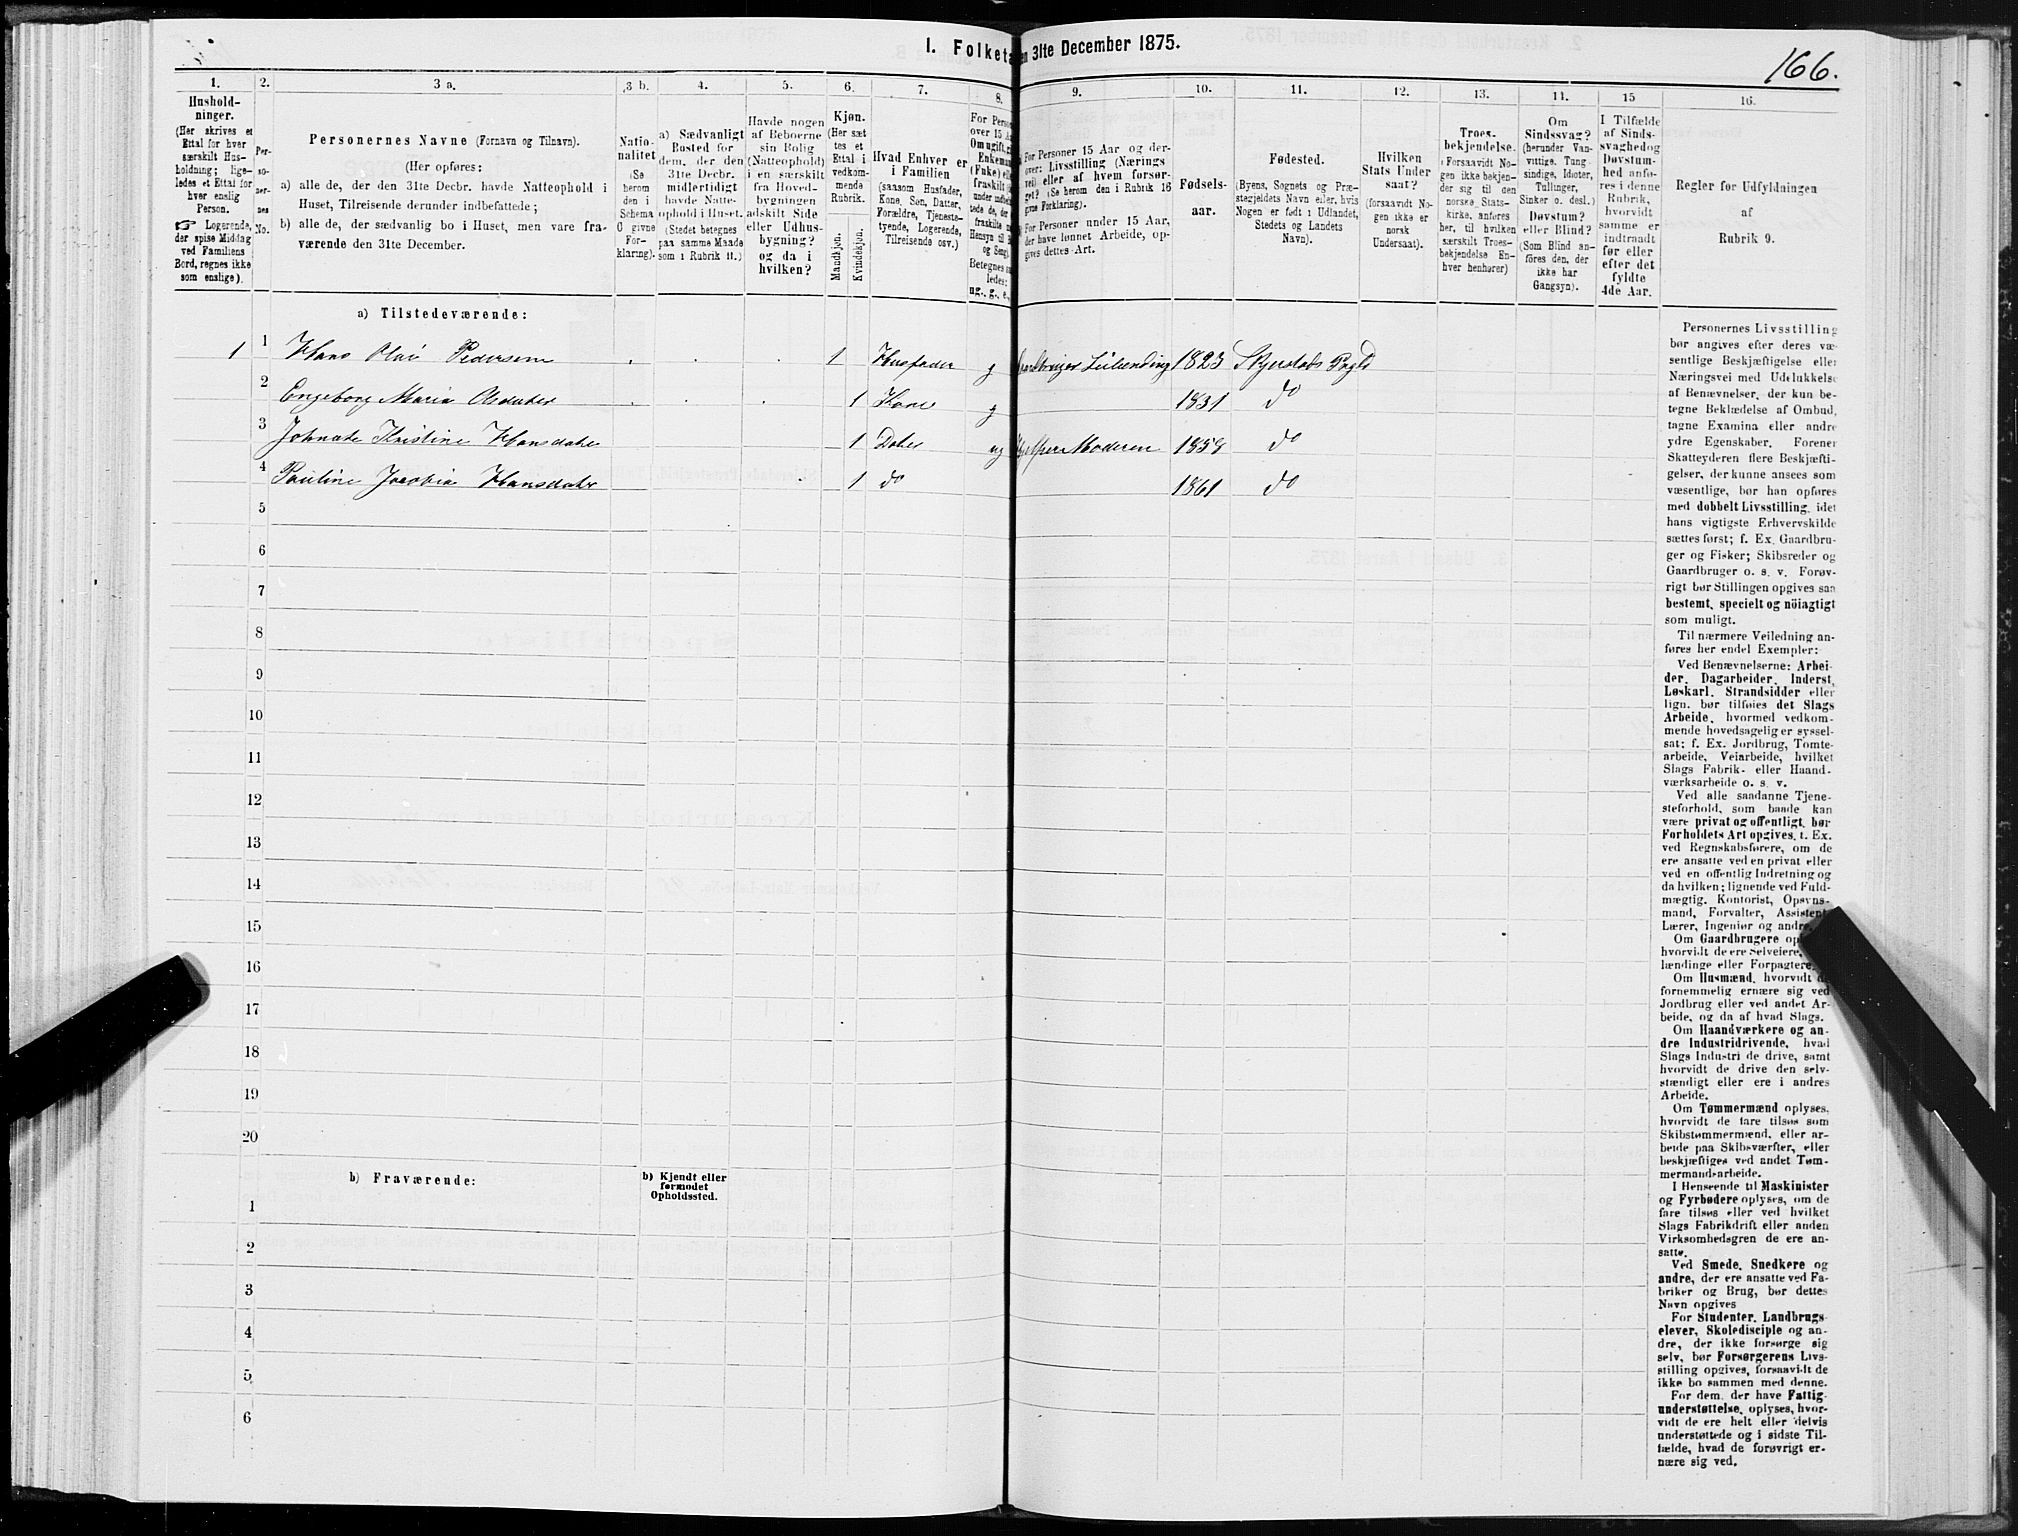 166.
I. Folketa en 31te December 1875.
1. 2. 3 a. 3 b. 4. 5. 6. 7. 8. 9. 10. 11. 12. 13. 14. 15 16.
Hushold-
ninger.
(Her skrives et
Ettal for hver
særskilt Hus-
holdning; lige-
ledes et Ettal for
hver enslig
Person.
☞ Logerende,
der spise Middag
ved Familiens
Bord, regnes ikke
som enslige).
Per-
so-
ner-
nes
No.
Personernes Navne (Fornavn og Tilnavn).
(Her opføres:
a) alle de, der den 31te Decbr. havde Natteophold i
Huset, Tilreisende derunder indbefattede;
b) alle de, der sædvanlig bo i Huset, men vare fra-
værende den 31te December.
Natio-
nalitet
(Se
herom
den i
Schema
O givne
For-
klaring).
a) Sædvanligt
Bosted for
dem, der den
31te Decbr.
midlertidigt
havde Natte-
ophold i Huset.
(Stedet betegnes
paa samme Maade
som i Rubrik 11.)
Havde nogen
af Beboerne
sin Bolig
(Natteophold)
i en særskilt
fra Hoved-
bygningen
adskilt Side
eller Udhus-
bygning?
og da i
hvilken?
Kjøn.
(Her sæt
tes et
Ettal i
vedkom-
mende
Rubrik.
Mandkjøn.
Kvindekjøn.
Hvad Enhver er
i Familien
(saasom Husfader,
Kone, Søn, Datter,
Forældre, Tjeneste-
tyende, Logerende,
Tilreisende osv.)
For Perso
over 15 A
Om ugift, g
Enkeman
(Fnke) el
fraskilt
under indbe
tede de, der
fraskilte
Hensyn til
og Seng).
Betegnes s
ledes:
ug., g., e.,
For Personer 15 Aar og der-
over: Livsstilling (Nærings
vei) eller af hvem forsør-
get? (Se herom den i Rubrik 16
givne Forklaring).
For Personer under 15 Aar,
der have lønnet Arbeide, op-
gives dettes Art.
Fødsels-
aar.
Fødested.
(Byens, Sognets og Præ-
stegjeldets Navn eller, hvis
Nogen er født i Udlandet,
Stedets og Landets
Navn).
Hvilken
Stats Under
saat?
(forsaavidt No-
gen ikke er
norsk
Undersaat).
Troes-
bekjendelse.
(Forsaavidt No-
gen ikke bekjen-
der sig til den
norske Stats-
kirke, anføres
her, til hvilken
særskilt Troes-
bekjendelse En-
hver henhører)
Om
Sindssvag?
(herunder Van-
vittige, Tung
sindige, Idioter,
Tullinger,
Sinker o. desl.)
Døvstum?
eller Blind?
(Som Blind an-
føres den, der
ikke har
Gangsyn).
I Tilfælde
af Sinds-
svaghed og
Døvstum-
hed anfø-
res i denne
Rubrik,
hvorvidt
samme er
indtraadt
før eller
efter det
fyldte
4de Aar.
Regler for Udfyldningen
af
Rubrik 9.
a) Tilstedeværende:
1 1 Hans Olai Pedersen . . . 1 Husfader g Leilending 1823 Prgld
2 Engeborg Maria Olsdater . . . 1 Kone g 1831 do
3 Kristine Hansdater 1 Dater ug Moderen 1858 do
4 Pauline Jacobia Hansdater 1 do 1861 do
5
6
7
8
9
10
11
12
13
14
15
16
17
18
19
20
b) Fraværende:
b) Kjendt eller
formodet
Opholdssted.
1
2
3
4
5
6
Personernes Livsstilling
bør angives efter deres væ-
sentlige Beskjæftigelse eller
Næringsvei med Udelukkelse
af Benævnelser, der kun be-
tegne Beklædelse af Ombud,
tagne Examina eller andre
ydre Egenskaber. Forener
Skatteyderen flere Beskjæfti-
gelser, der kunne ansees som
væsentlige, bør han opføres
med dobbelt Livsstilling, idet
hans vigtigste Erhvervskilde
sættes først; f. Ex. Gaardbru-
ger og Fisker; Skibsreder og
Gaardbruger o. s. v. Forøv-
rigt bør Stillingen opgives saa
bestemt, specielt og nöiagtigt
som muligt.
Til nærmere Veiledning an-
føres her endel Exempler:
Ved Benævnelserne: Arbei-
der, Dagarbeider, Inderst,
Løskarl, Strandsidder eller
lign. bør tilføies det Slags
Arbeide, hvormed vedkom-
mende hovedsagelig er syssel-
sat; f. Ex. Jordbrug, Tomte-
arbeide, Veiarbeide, hvilket
Slags Fabrik- eller Haand-
værksarbeide o. s. v.
Ved alle saadanne Tjene-
steforhold, som baade kan
være privat og offentligt, bør
Forholdets Art opgives, t. Ex.
ved Regnskabsførere, om de
ere ansatte ved en privat eller
ved en offentlig Indretning og
da hvilken; lignende ved Fuld-
mægtig, Kontorist, Opsyns-
mand, Forvalter, Assistent,
Lærer, Ingeniør og andre.
Om Gaardbrugere op
hvorvidt de ere Selveiere,
lændinge eller Forpagtere.
Om Husmænd, hvorvidt d
fornemmelig ernære sig ved
Jordbrug eller ved andet Ar-
beide, og da af hvad Slags.
Om Haandværkere og an-
dre Industridrivende, hvad
Slags Industri de drive, samt
hvorvidt de drive den selv-
stændigt eller ere i andres
Arbeide.
Om Tømmermænd oplyses,
hvorvidt de fare tilsøs som
Skibstømmermænd, eller ar-
beide paa Skibsværfter, eller
beskjæftiges ved andet Tøm-
mermandsarbeide.
I Henseende til Maskinister
og Fyrbødere oplyses, om de
fare tilsøs eller ved hvilket
Slags Fabrikdrift eller anden
Virksomhedsgren de ere an-
satte.
Ved Smede, Snedkere og
andre, der ere ansatte ved Fa-
briker og Brug, bør dettes
Navn opgives
For Studenter, Landbrugs-
elever, Skoledisciple og an-
dre, der ikke forsørge sig
selv, bør Forsørgerens Livs-
stilling opgives, forsaavidt de
ikke bo sammen med denne.
For dem, der have Fattig-
understøttelse, oplyses, hvor-
vidt de ere helt eller delvis
understøttede og i sidste Til-
fælde, hvad de forøvrigt er-
nære sig ved.